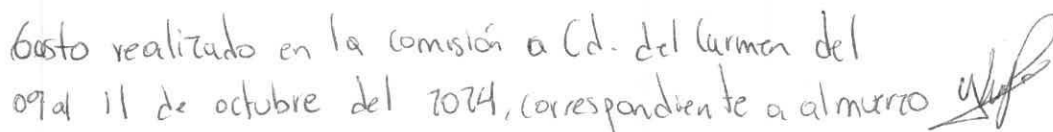 Gasto realizado en la comisión a Cd. del Carmen del
09 al 11 de octubre del 2024, correspondiente a almuerzo